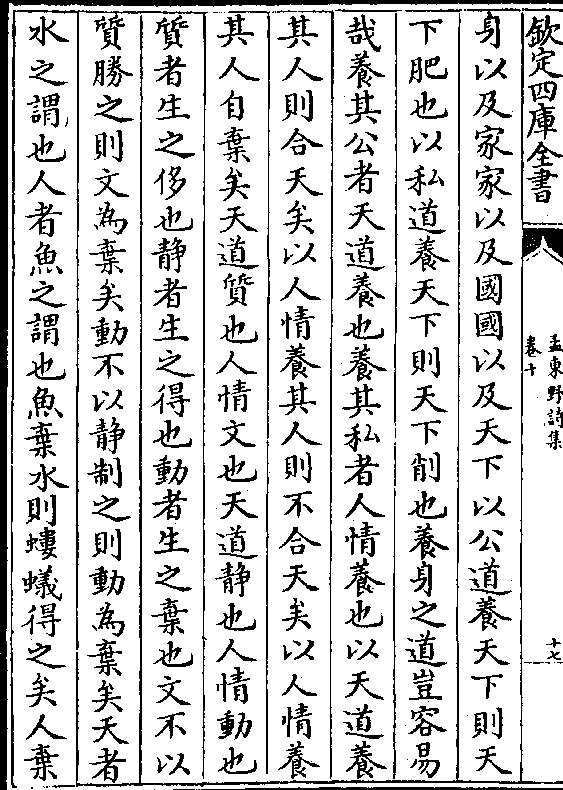 欽定四庫全書
孟東野詩集
卷十
十七
身以及家家以及國國以及天下以公道養天下則天
下肥也以私道養天下則天下削也養身之道豈容易
哉養其公者天道養也養其私者人情養也以天道養
其人則合天矣以人情養其人則不合天矣以人情養
其人自棄矣天道質也人情文也天道静也人情動也
質者生之侈也静者生之得也動者生之棄也文不以
質勝之則文為棄矣動不以静制之則動為棄矣天者
水之謂也人者魚之謂也魚棄水則螻蟻得之矣人棄